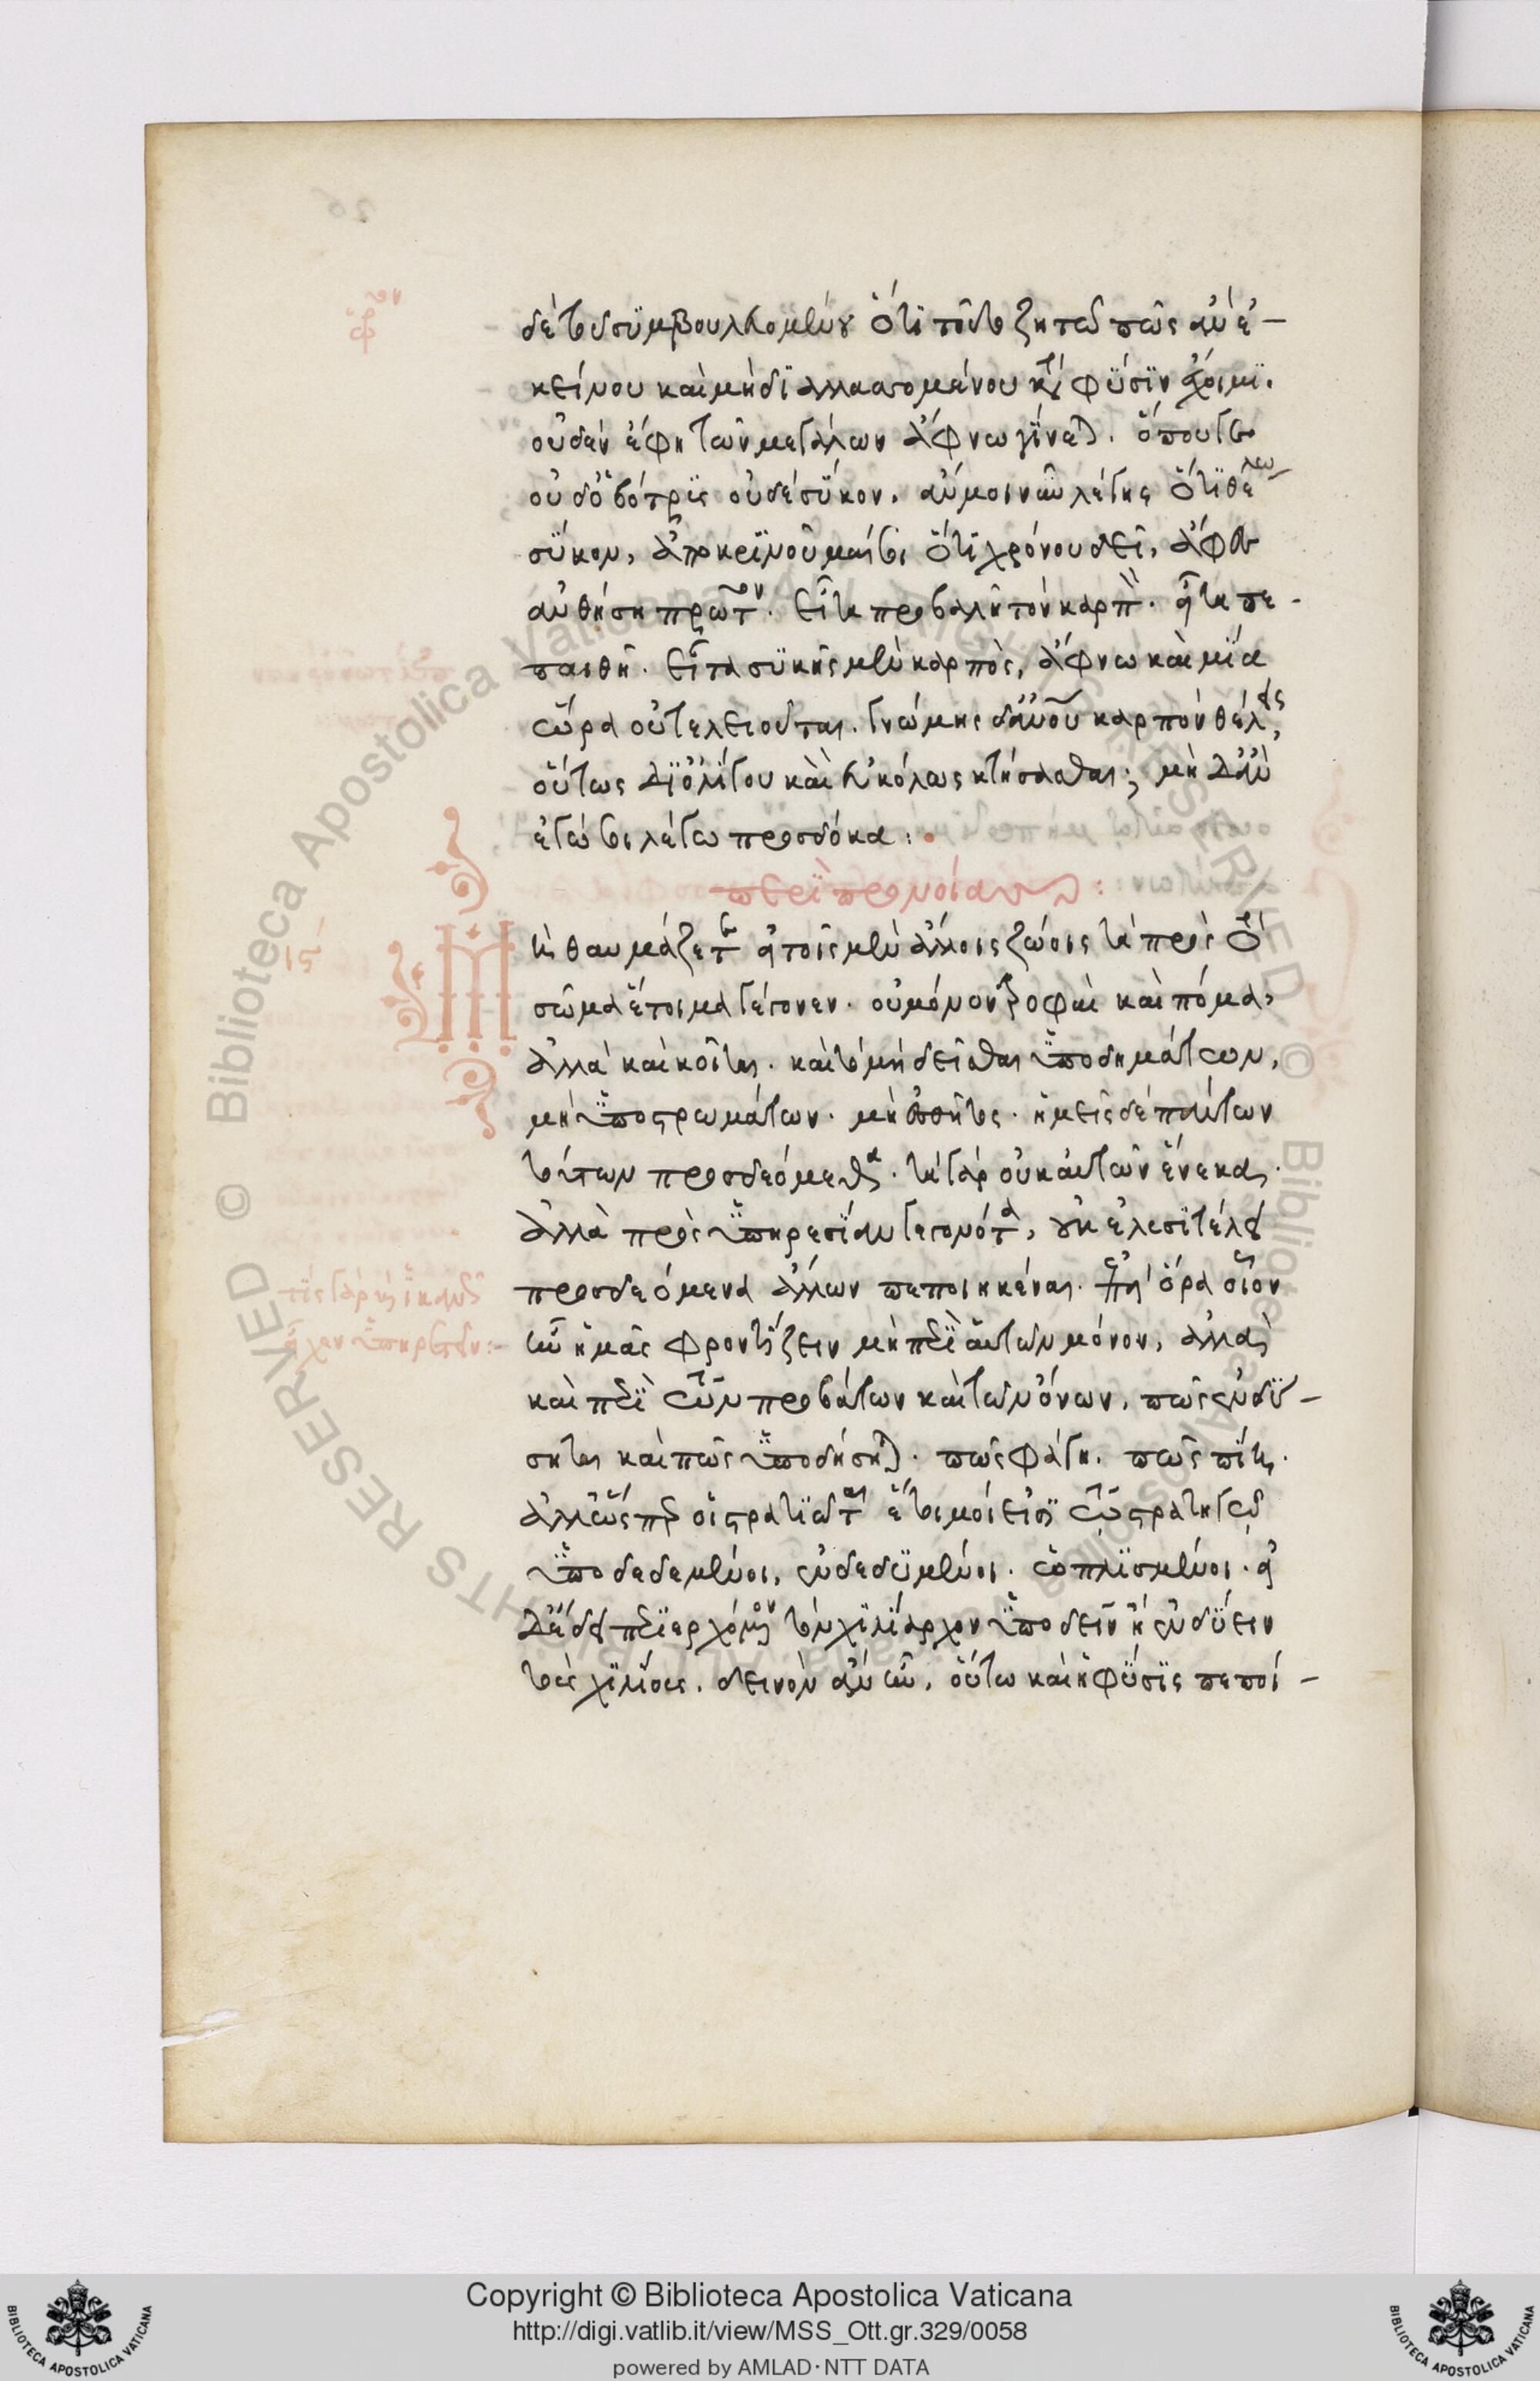 δὲ τοῦ συμβουλευομένου ὅτι τοῦτο ζητῶ πῶς ἂν ἐ-
κείνου καὶ μὴ διαλλασσομένου κατὰ φύσιν ἔχοιμι.
οὐδὲν ἔφη τῶν μεγάλων ἄφνω γίνεται. ὅπου γε
οὐδ' ὁ βότρυς οὐδὲ σῦκον. ἄν μοι νῦν λέγης ὅτι θέλω
σῦκον, ἀποκρινοῦμαί σοι ὅτι χρόνου δεῖ, ἄφες
ἀνθήση πρῶτον. εἶτα προβάλη τὸν καρπόν. εἶτα πε-
πανθῆ. εἶτα συκῆς μὲν καρπὸς, ἄφνω καὶ μία
ὥρα οὐ τελειοῦται. γνώμης δ' ἀνου καρπὸν θέλεις
οὕτως δι' ὀλίγου καὶ εὐκόλως κτήσασθαι; μὴ δ' ἂν
ἐγώ σοι λέγω προσδόκα:
περὶ προνοίας:
ις
Μὴ θαυμάζετε εἰ τοῖς μὲν ἄλλοις ζώοις τὰ πρὸς τὸ
σῶμα ἕτοιμα γέγονεν. οὐ μόνον τροφαὶ καὶ πόμα,
ἀλλὰ καὶ κοίτη. καὶ τὸ μὴ δεῖσθαι ὑποδημάτων,
μὴ ὑποστρωμάτων. μὴ ἐσθῆτος. ἡμεῖς δὲ πάντων
τούτων προσδεόμεθα. τὰ γὰρ οὐκ αὐτῶν ἕνεκα,
ἀλλὰ πρὸς ὑπηρεσίαν γεγονότα, οὐκ ἐλυσιτέλει
προσδεόμενα ἄλλων πεποιηκέναι. ἐπεὶ ὅρα οἷον
ἦν ἡμᾶς φροντίζειν μὴ περὶ αὐτῶν μόνον, ἀλλὰ
καὶ περὶ τῶν προβάτων καὶ τῶν ὄνων, πῶς ἐνδύ-
σηται καὶ πῶς ὑποδήσηται. πῶς φάγη. πῶς πίη.
ἀλλ' ὥσπερ οἱ στρατιῶται ἕτοιμοί εἰσι τῶ στρατηγῶ
ὑποδεδεμένοι, ἐνδεδυμένοι. ὁπλισμένοι. εἰ
δ' ἔδει περιερχόμενον τὸν χιλίαρχον ὑποδεῖν ἢ ἐνδύειν
τοὺς χιλίους. δεινὸν ἂν ἦν. οὕτω καὶ ἡ φύσις πεποί-
© Biblioteca Apostolica Vaticana
RIGHTS RESERVED
Copyright © Biblioteca Apostolica Vaticana
http://digi.vatlib.it/view/MSS_Ott.gr.329/0058
powered by AMLAD·NTT DATA
BIBLIOTECA APOSTOLICA VATICANA
BIBLIOTECA APOSTOLICA VATICANA